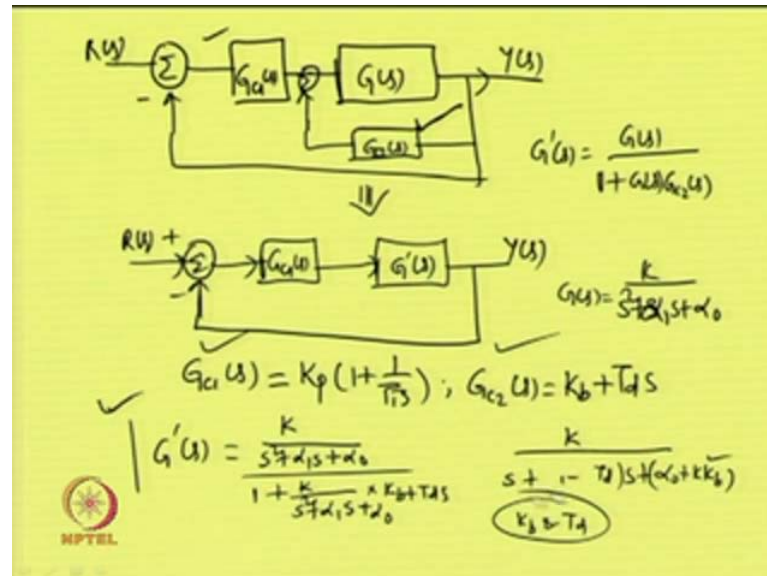 R(s) Σ G_c1(s) Σ G(s) Y(s)
-
G_c2(s)
G'(s) = G(s) / (1 + G(s)G_c2(s))
R(s) + Σ G_c1(s) G'(s) Y(s)
-
G(s) = K / (s² + α₁s + α₀)
G_c1(s) = K_p(1 + 1/(T_i s)) ; G_c2(s) = K_b + T_d s
G'(s) = (K / (s² + α₁s + α₀)) / (1 + K / (s² + α₁s + α₀) × K_b + T_d s)
K / (s + T_d)s + (α₀ + KK_b)
K_b & T_d
NPTEL